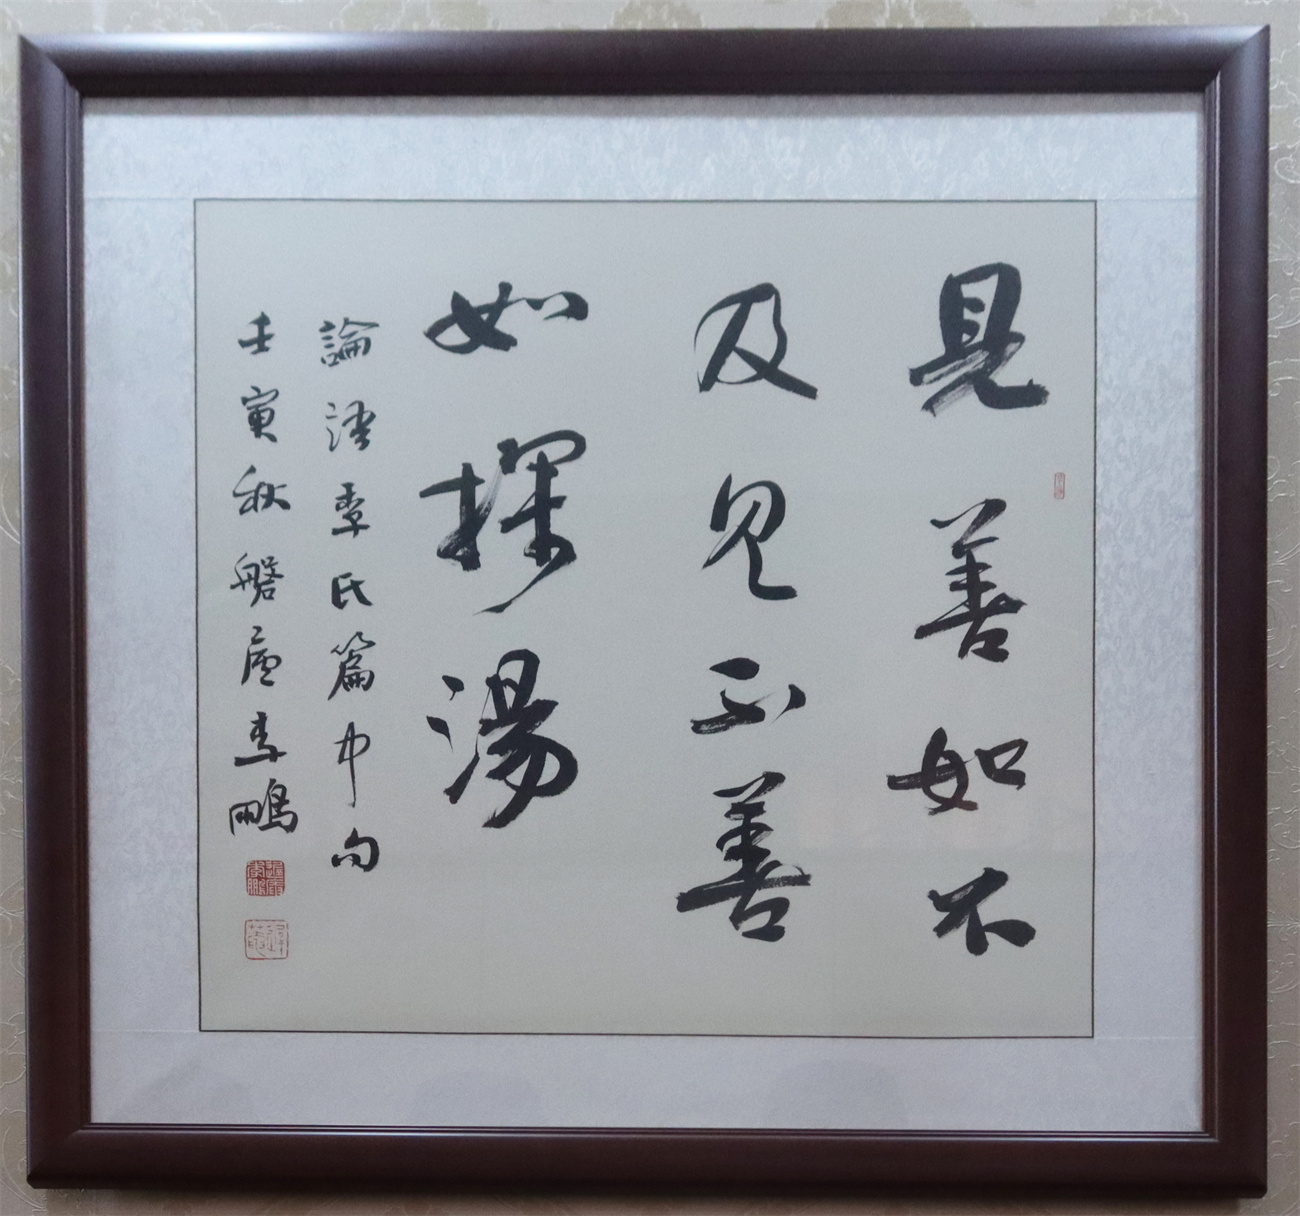 見善如不
及見不善
如探湯
論語季氏篇中句
壬寅秋磐廬李鵬